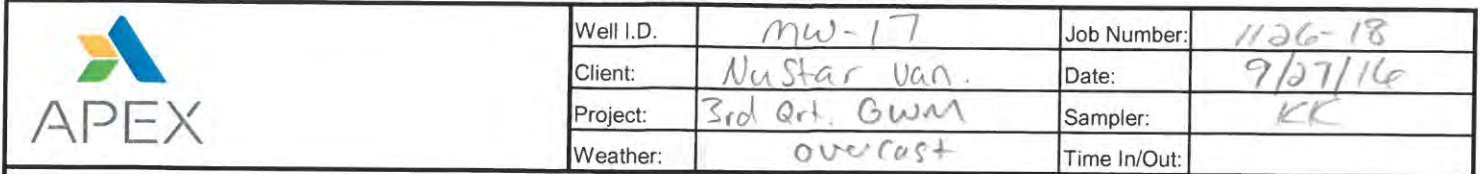 Well I.D. MW-17 Job Number: 1126-18
Client: NuStar Van. Date: 9/27/16
APEX Project: 3rd Qrt. GWM Sampler: KK
Weather: overcast Time In/Out: